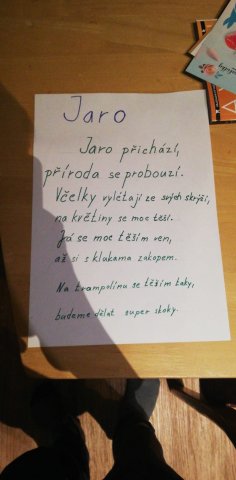 Jaro
Jaro přichází,
příroda se probouzí.
Včelky vylétají ze svých skrýší,
na květiny se moc těší.
Já se moc těším ven,
až si s klukama zakopem.
Na trampolínu se těším taky,
budeme dělat super skoky.